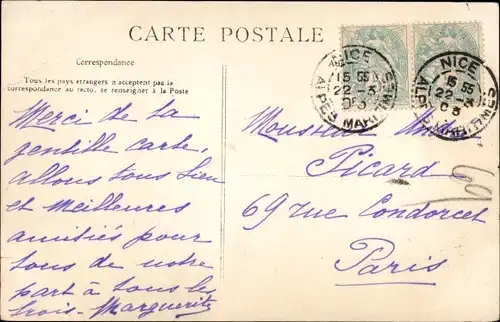 CARTE POSTALE
Correspondance
Tous les pays étrangers n'acceptent pas la
correspondance au recto, se renseigner à la Poste
NICE
15 55
22 - 3
03
ALPES MARITIMES
NICE
15 55
22 - 3
03
ALPES MARITIMES
Merci de ta
gentille carte,
allons tous bien
et meilleures
amitiés pour
tous de notre
part à tous les
trois - Marguerite
Monsieur
Picard
69 Rue Condorcet
Paris